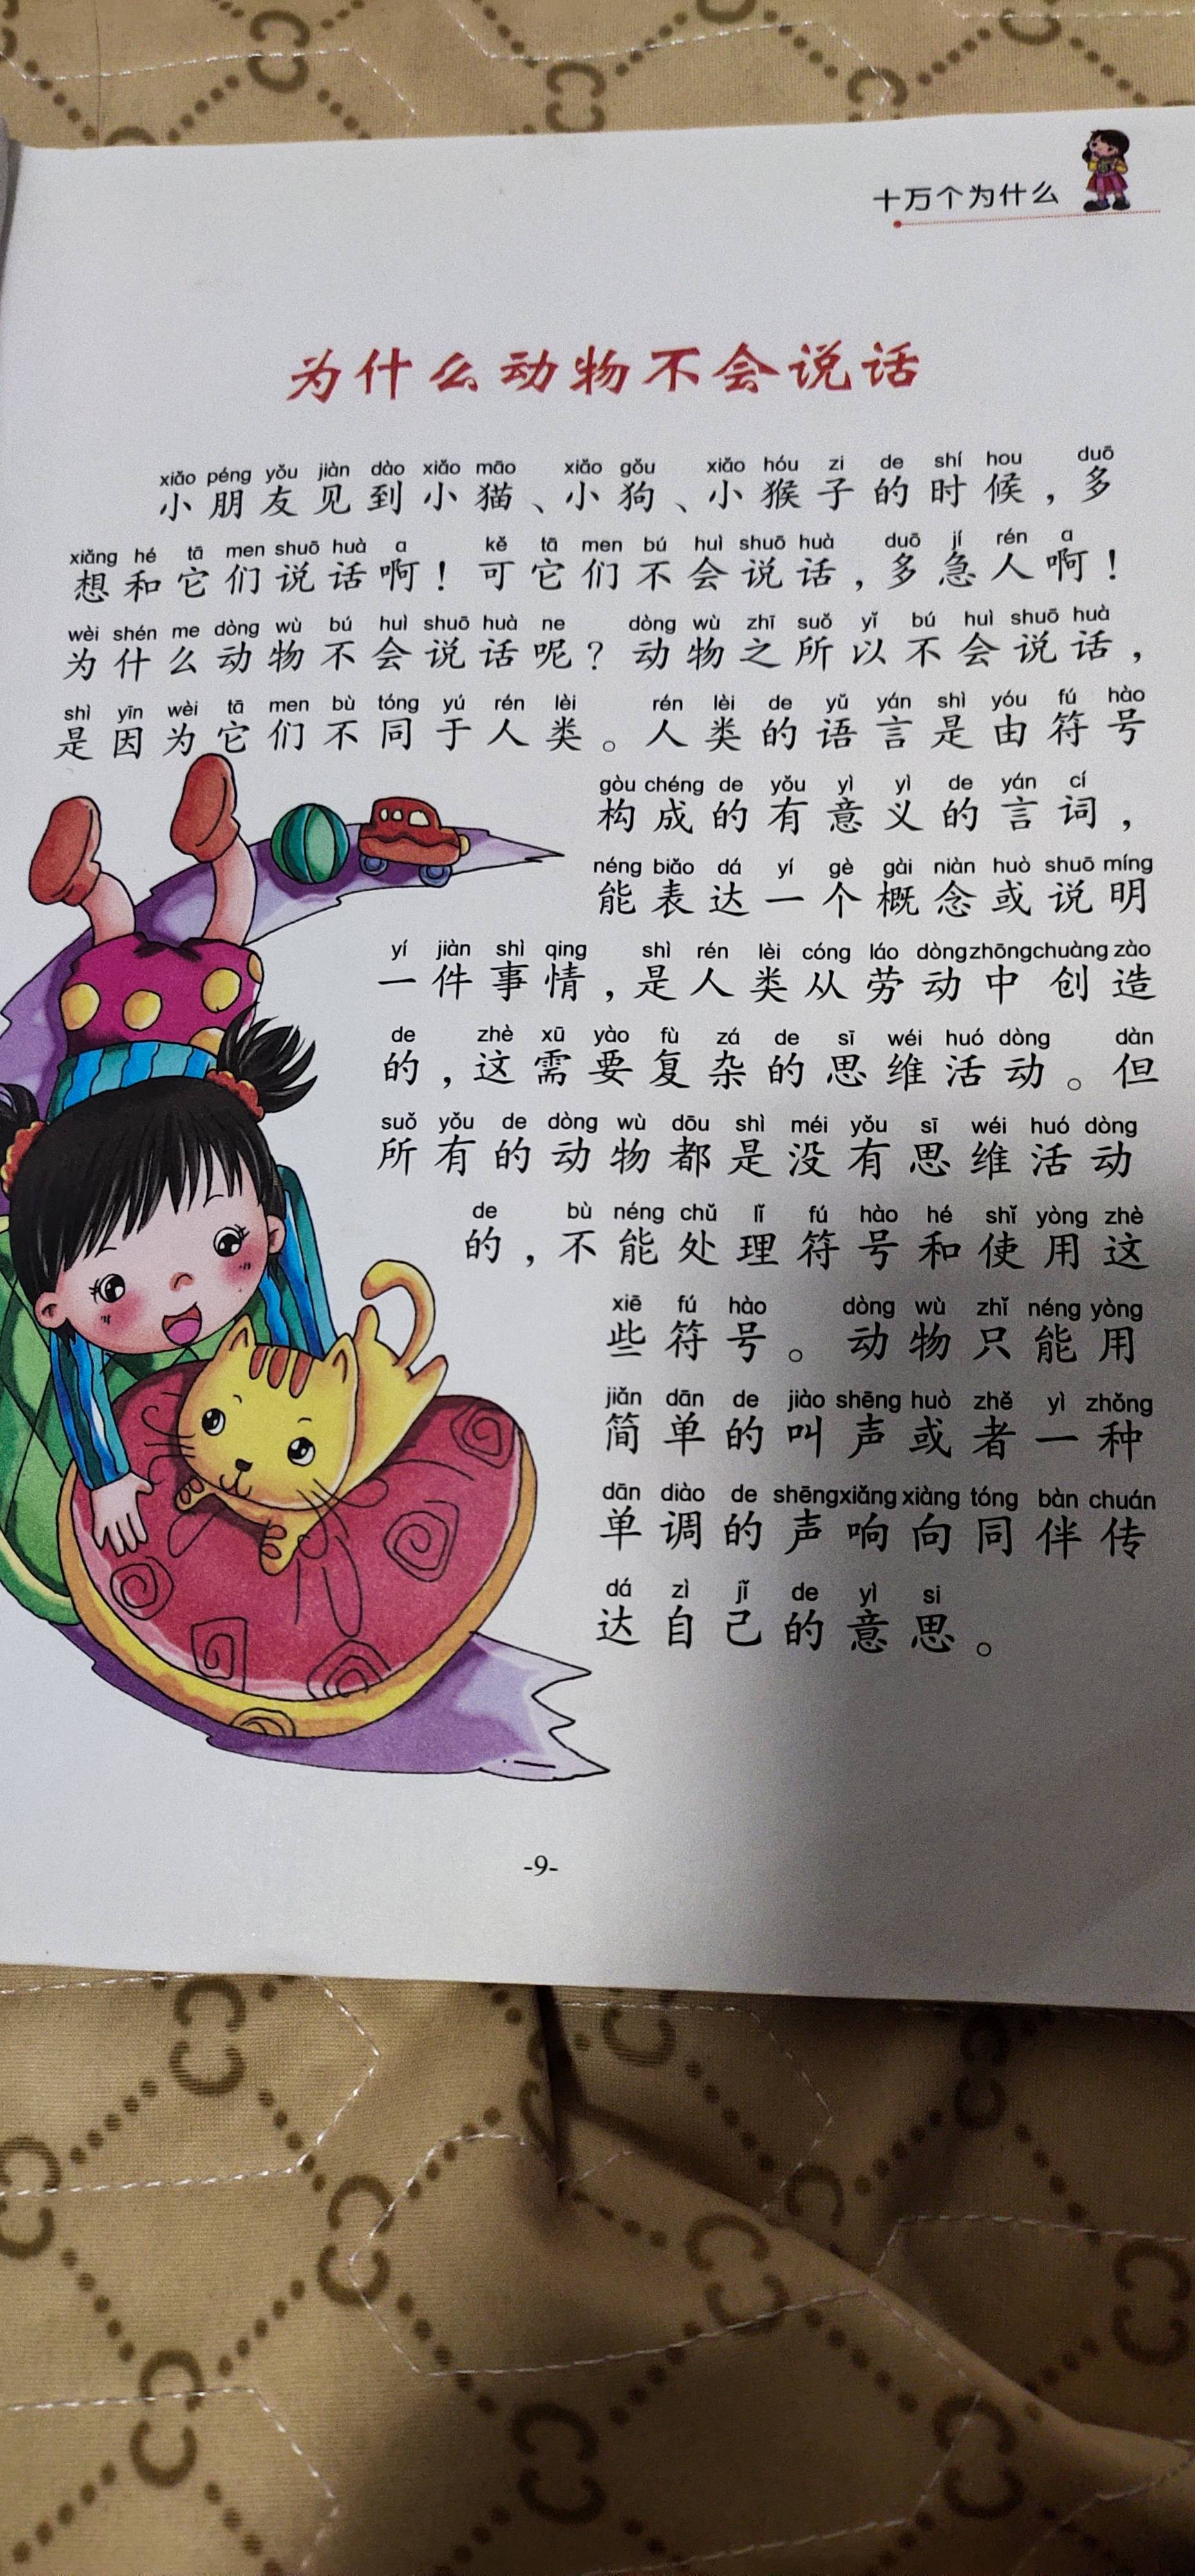 十万个为什么
为什么动物不会说话
xiǎo péng yǒu jiàn dào xiǎo māo xiǎo gǒu xiǎo hóu zi de shí hou duō
小朋友见到小猫、小狗、小猴子的时候，多
xiǎng hé tā men shuō huà a kě tā men bú huì shuō huà duō jí rén a
想和它们说话啊！可它们不会说话，多急人啊！
wèi shén me dòng wù bú huì shuō huà ne dòng wù zhī suǒ yǐ bú huì shuō huà
为什么动物不会说话呢？动物之所以不会说话，
shì yīn wèi tā men bù tóng yú rén lèi rén lèi de yǔ yán shì yóu fú hào
是因为它们不同于人类。人类的语言是由符号
gòu chéng de yǒu yì yì de yán cí
构成的有意义的言词，
néng biǎo dá yí gè gài niàn huò shuō míng
能表达一个概念或说明
yí jiàn shì qing shì rén lèi cóng láo dòng zhōng chuàng zào
一件事情，是人类从劳动中创造
de zhè xū yào fù zá de sī wéi huó dòng dàn
的，这需要复杂的思维活动。但
suǒ yǒu de dòng wù dōu shì méi yǒu sī wéi huó dòng
所有的动物都是没有思维活动
de bù néng chǔ lǐ fú hào hé shǐ yòng zhè
的，不能处理符号和使用这
xiē fú hào dòng wù zhǐ néng yòng
些符号。动物只能用
jiǎn dān de jiào shēng huò zhě yì zhǒng
简单的叫声或者一种
dān diào de shēng xiǎng xiàng tóng bàn chuán
单调的声响向同伴传
dá zì jǐ de yì si
达自己的意思。
-9-